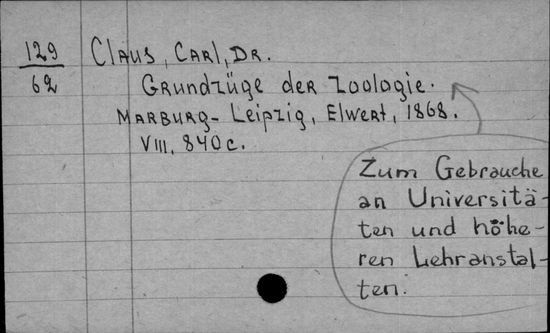 129
62
Claus, Carl, Dr.
Grundzüge der Zoologie.
Marburg-Leipzig, Elwert, 1868.
VIII, 840 c.
Zum Gebrauche
an Universitä-
ten und höhe-
ren Lehranstal-
ten.